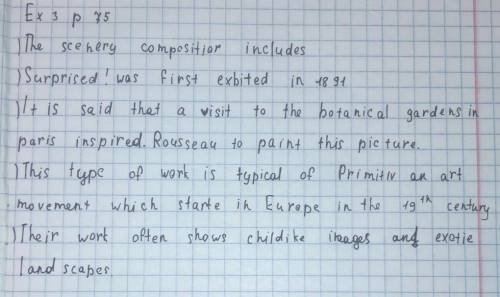 Ex 3 p 75
)The scenery compositior includes
)Surprised! was first exbited in 1891
)It is said that a visit to the botanical gardens in
paris inspired. Rousseau to paint this picture.
)This type of work is typical of Primitiv an art
movement which starte in Europe in the 19th century
)Their work often shows childike images and exotic
land scapes.